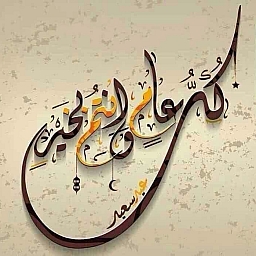 كل عام وانتم بخير
عيد سعيد